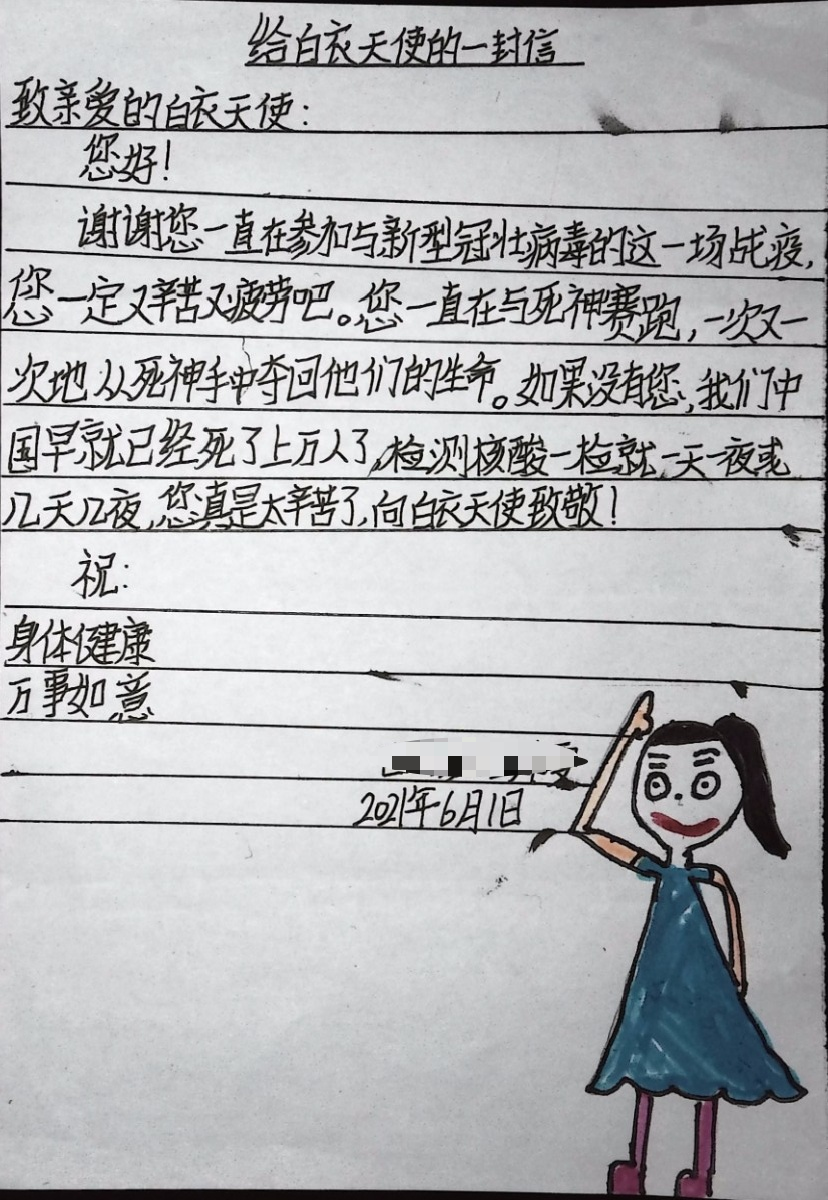 给白衣天使的一封信
致亲爱的白衣天使：
您好！
谢谢您一直在参加与新型冠壮病毒的这一场战疫，
您一定又辛苦又疲劳吧。您一直在与死神赛跑，一次又一
次地从死神手中夺回他们的生命。如果没有您，我们中
国早就已经死了上万人了，检测核酸一检就一天一夜或
几天几夜，您真是太辛苦了，向白衣天使致敬！
祝：
身体健康
万事如意
2021年6月1日